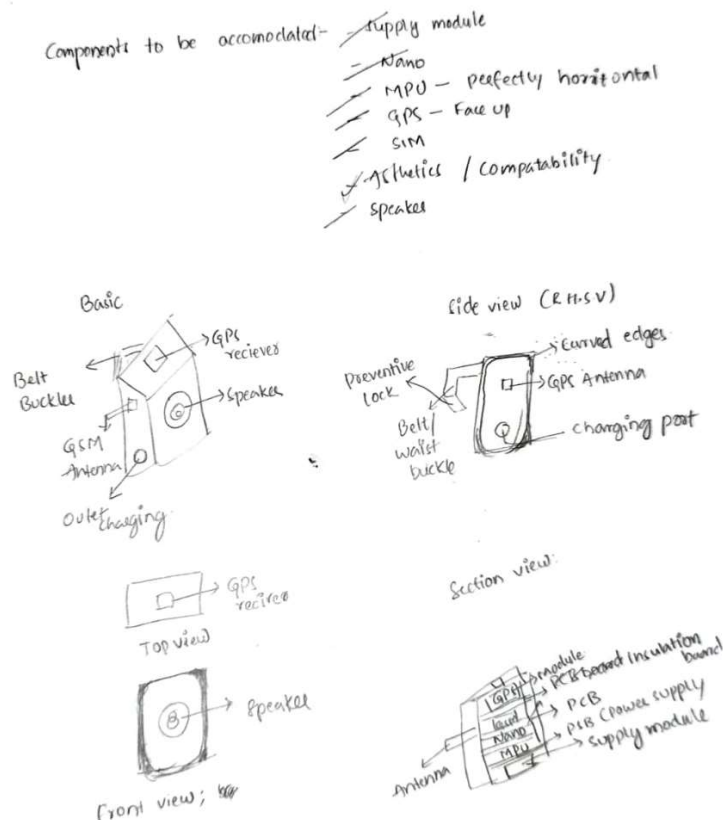 Components to be accomodated - - Supply module
- Nano
- MPU - perfectly horizontal
- GPS - Face up
- SIM
- Asthetics / Compatability
- Speaker
Basic
GPS
reciever
Belt
Buckles
Speaker
GSM
Antenna
Outlet
charging
Side view (R.H.S.V)
Curved edges
Preventive
lock
GPS Antenna
Belt/
waist
buckle
Charging port
GPS
Top view
Speaker
Front view;
Section view:
GPS
module
PCB board Insulation
board
PCB
Nano
MPU
(Power supply
Supply module
Antenna